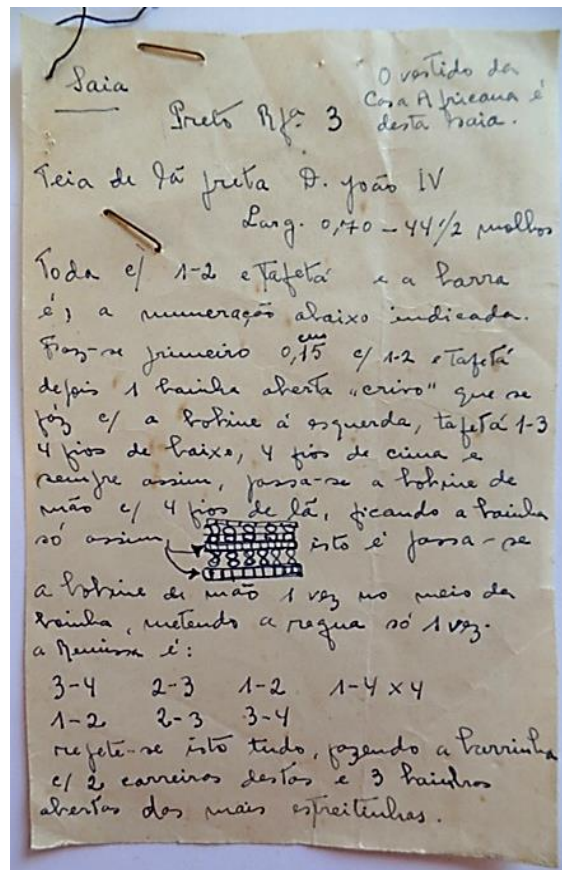 Saia
O vestido da
Casa Africana é
desta saia.
Preto Rfª 3
Teia de lã preta D. João IV
Larg. 0,70 - 44 1/2 molhos
Toda c/ 1-2 e Tafetá e a barra
é, a numeração abaixo indicada.
Faz-se primeiro 0,15 cm c/ 1-2 e Tafetá
depois 1 bainha aberta "crivo" que se
faz c/ a bobine á esquerda, tafetá 1-3
4 fios de baixo, 4 fios de cima e
sempre assim, passa-se a bobine de
mão c/ 4 fios de lã, ficando a bainha
só assim, isto é passa-se
a bobine de mão 1 vez no meio da
bainha, metendo a regua só 1 vez.
a Remissa é:
3-4 2-3 1-2 1-4 x 4
1-2 2-3 3-4
repete-se isto tudo, fazendo a barrinha
c/ 2 carreiros destas e 3 bainhas
abertas das mais estreitinhas.